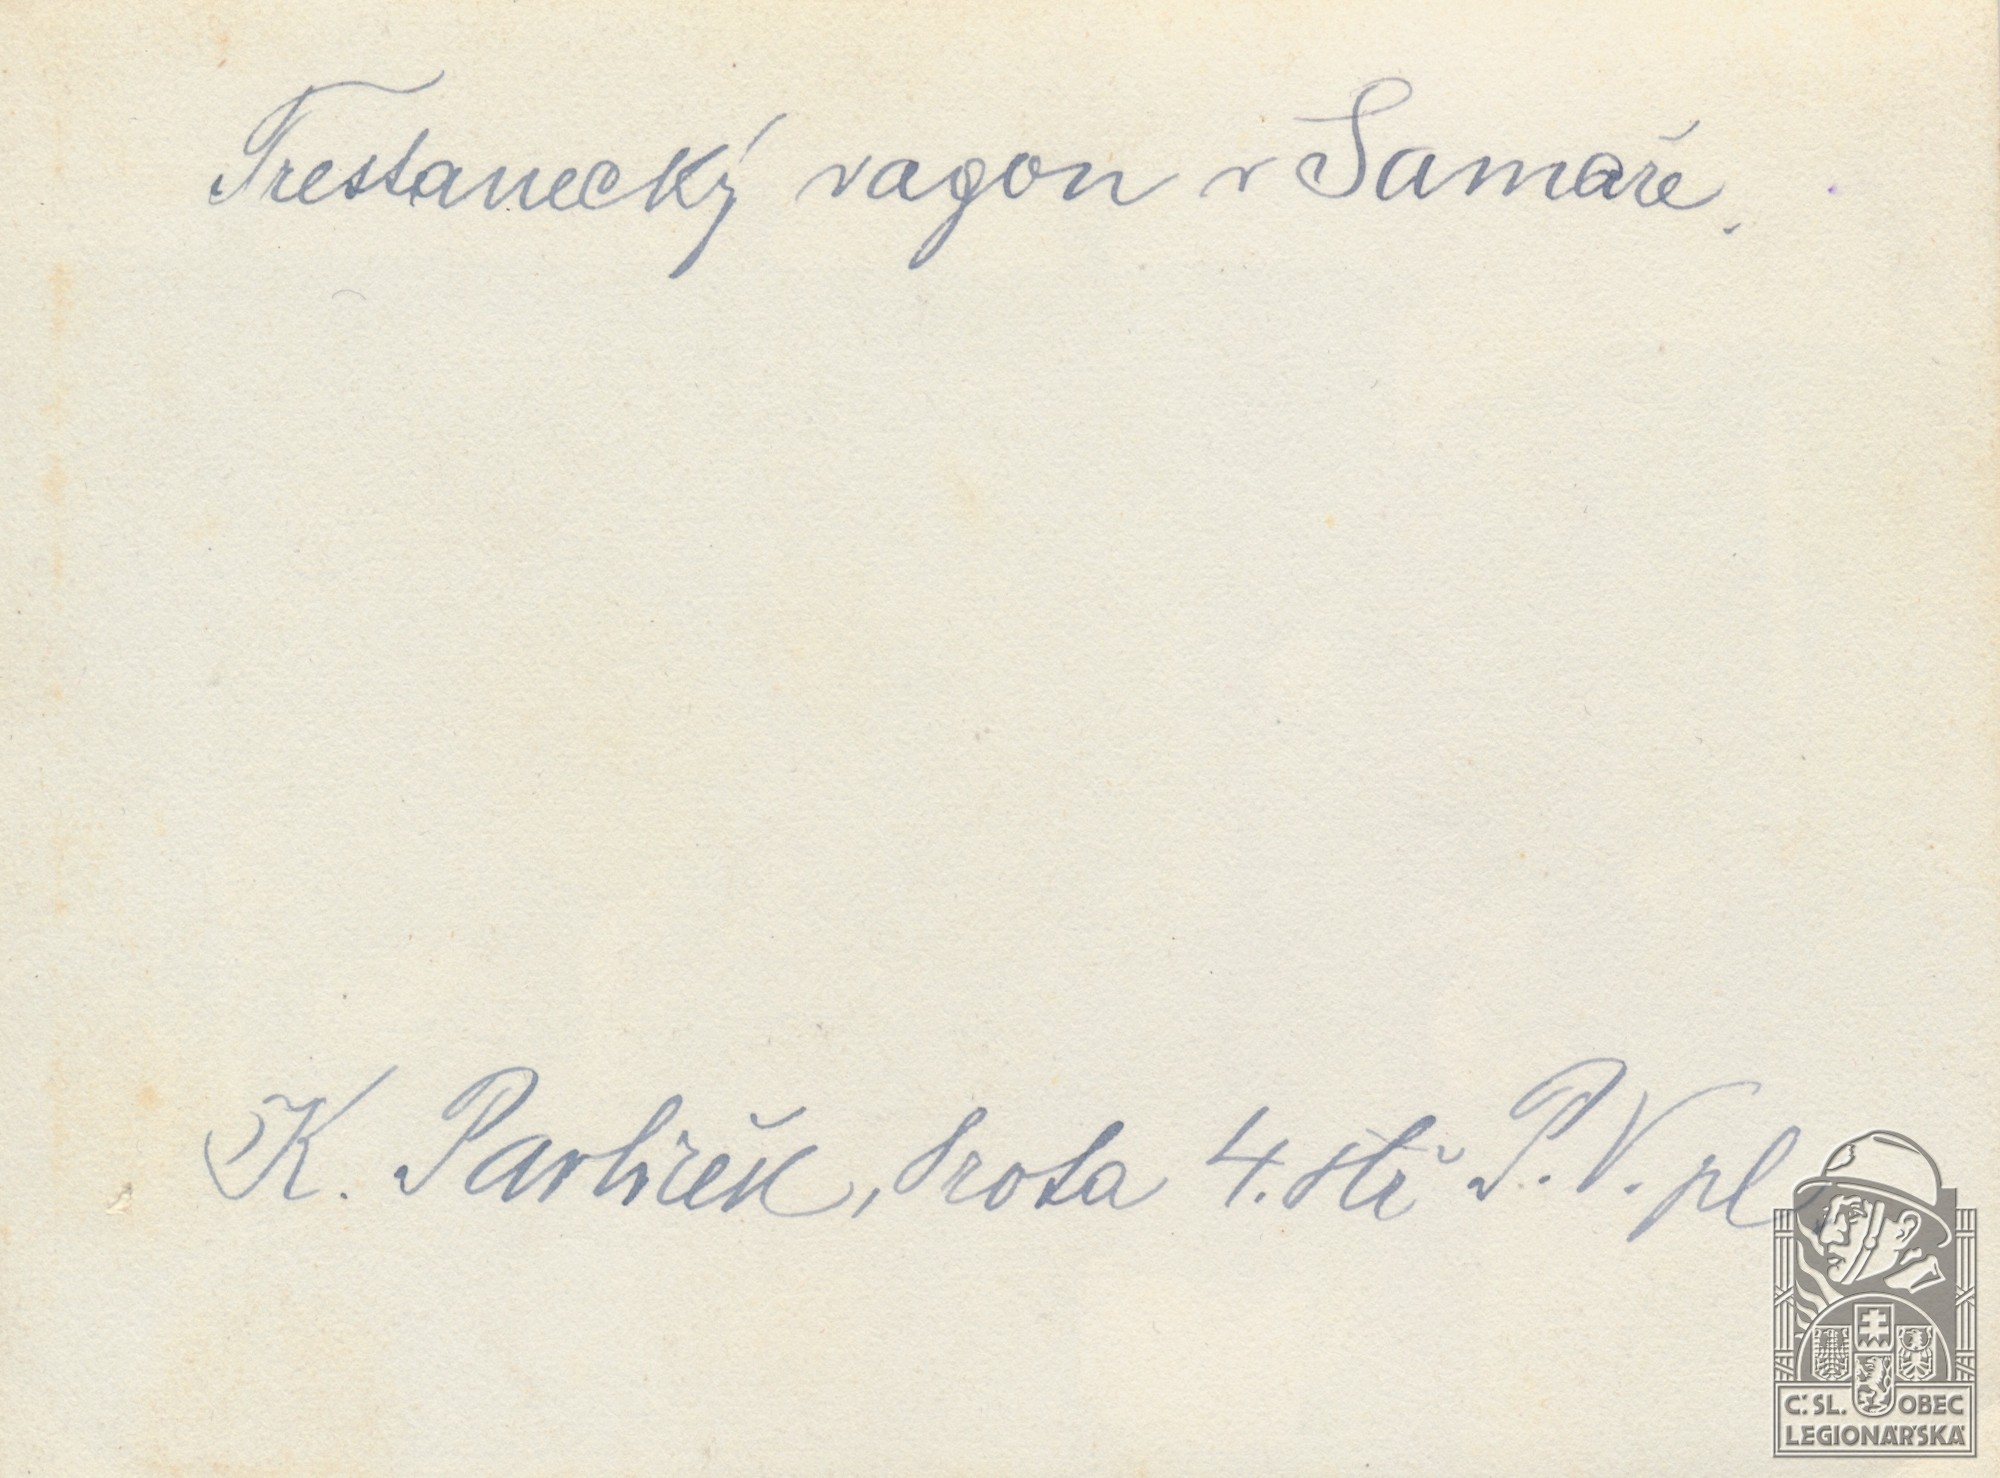 Trestanecký vagon v Samaře.
K. Pavlíček, 4. stř P. V. pl.
Č.SL. OBEC
LEGIONÁŘSKÁ